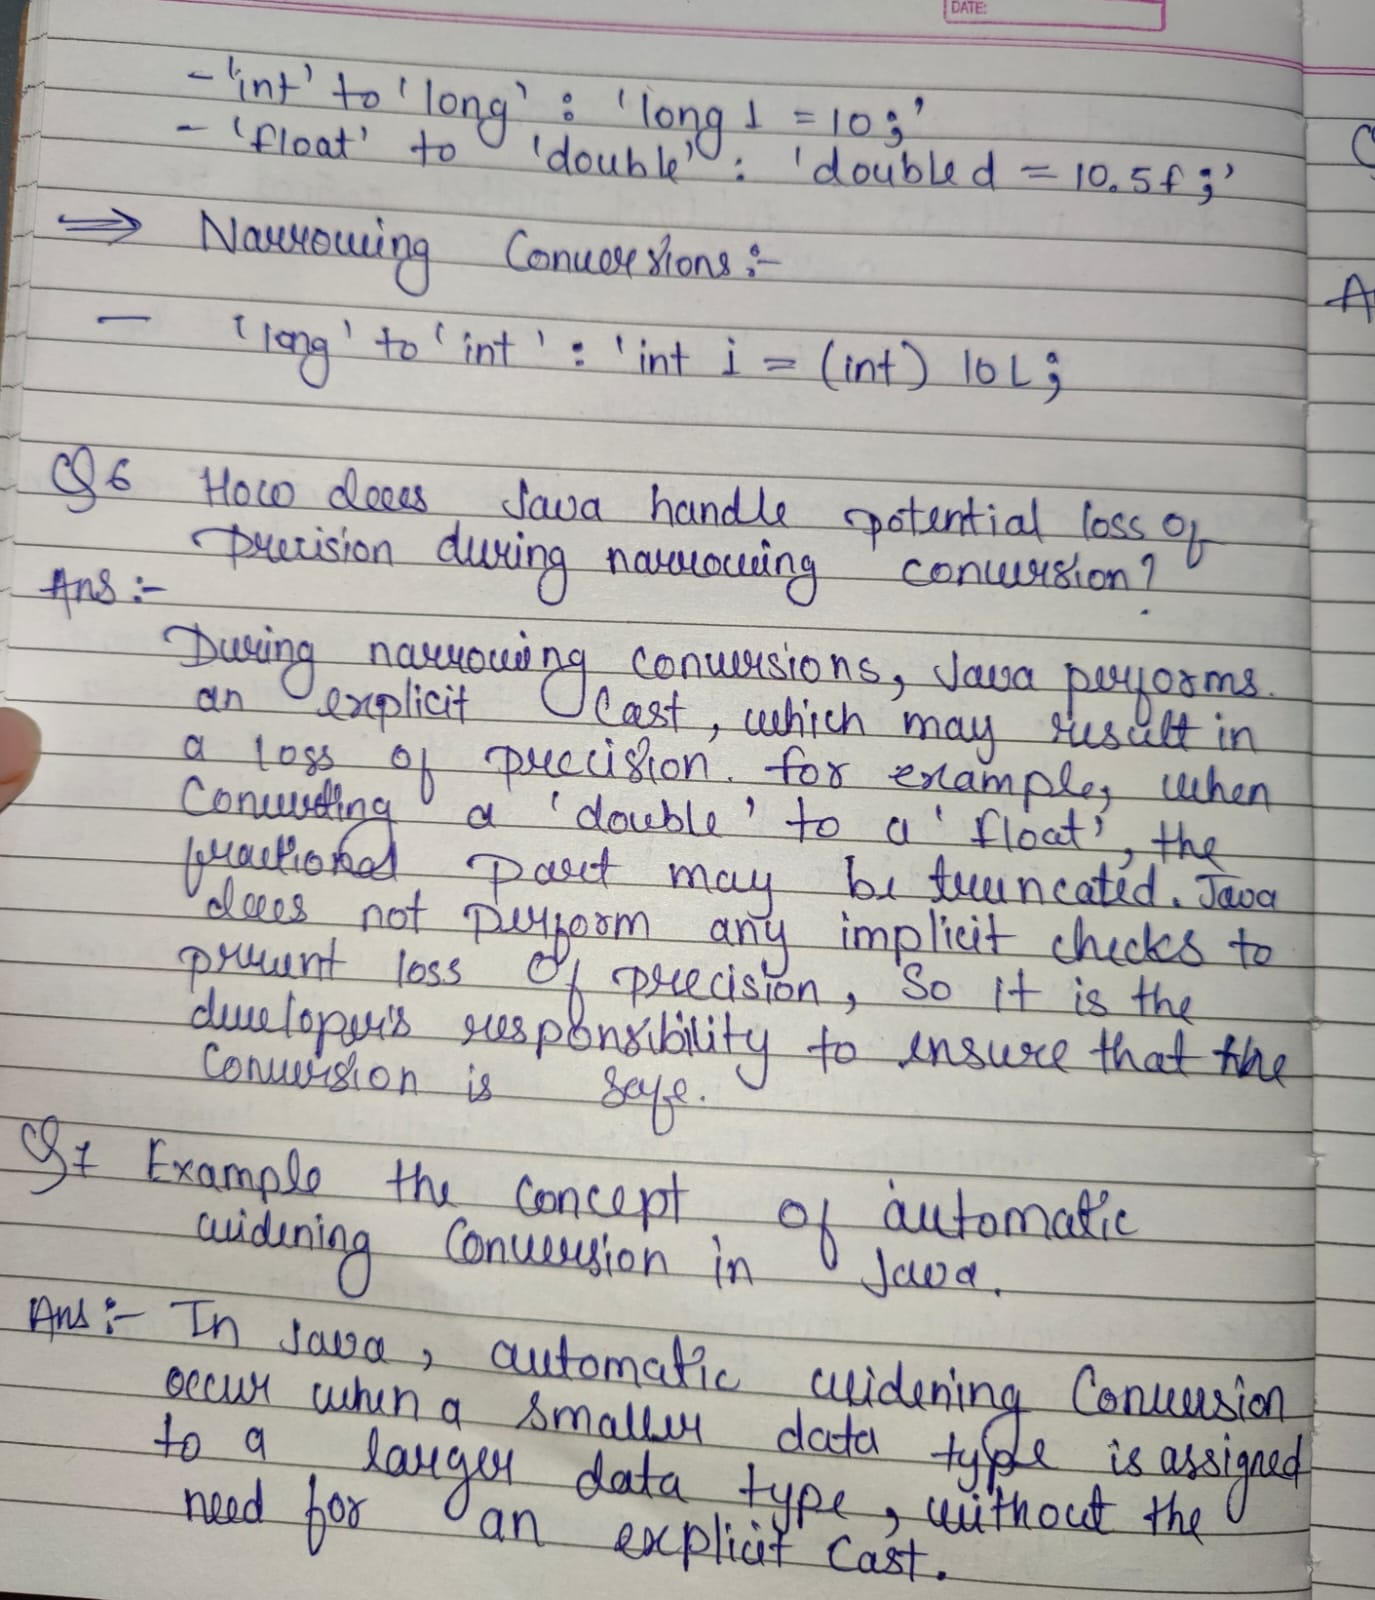 DATE:
- 'int' to 'long' : 'long l = 10;'
- 'float' to 'double' : 'double d = 10.5f;'
⇒ Narrowing Conversions :-
- 'long' to 'int' : 'int i = (int) 10L;
Q6 How does Java handle potential loss of
precision during narrowing conversion?
Ans :-
During narrowing conversions, Java performs.
an explicit Cast, which may result in
a loss of precision. for example, when
Converting a 'double' to a 'float', the
fractional part may be truncated. Java
does not perform any implicit checks to
prevent loss of precision, So it is the
developer's responsibility to ensure that the
Conversion is safe.
Q7 Example the concept of automatic
widening Conversion in Java.
Ans :- In Java, automatic widening Conversion
occur when a smaller data type is assigned
to a larger data type, without the
need for an explicit Cast.